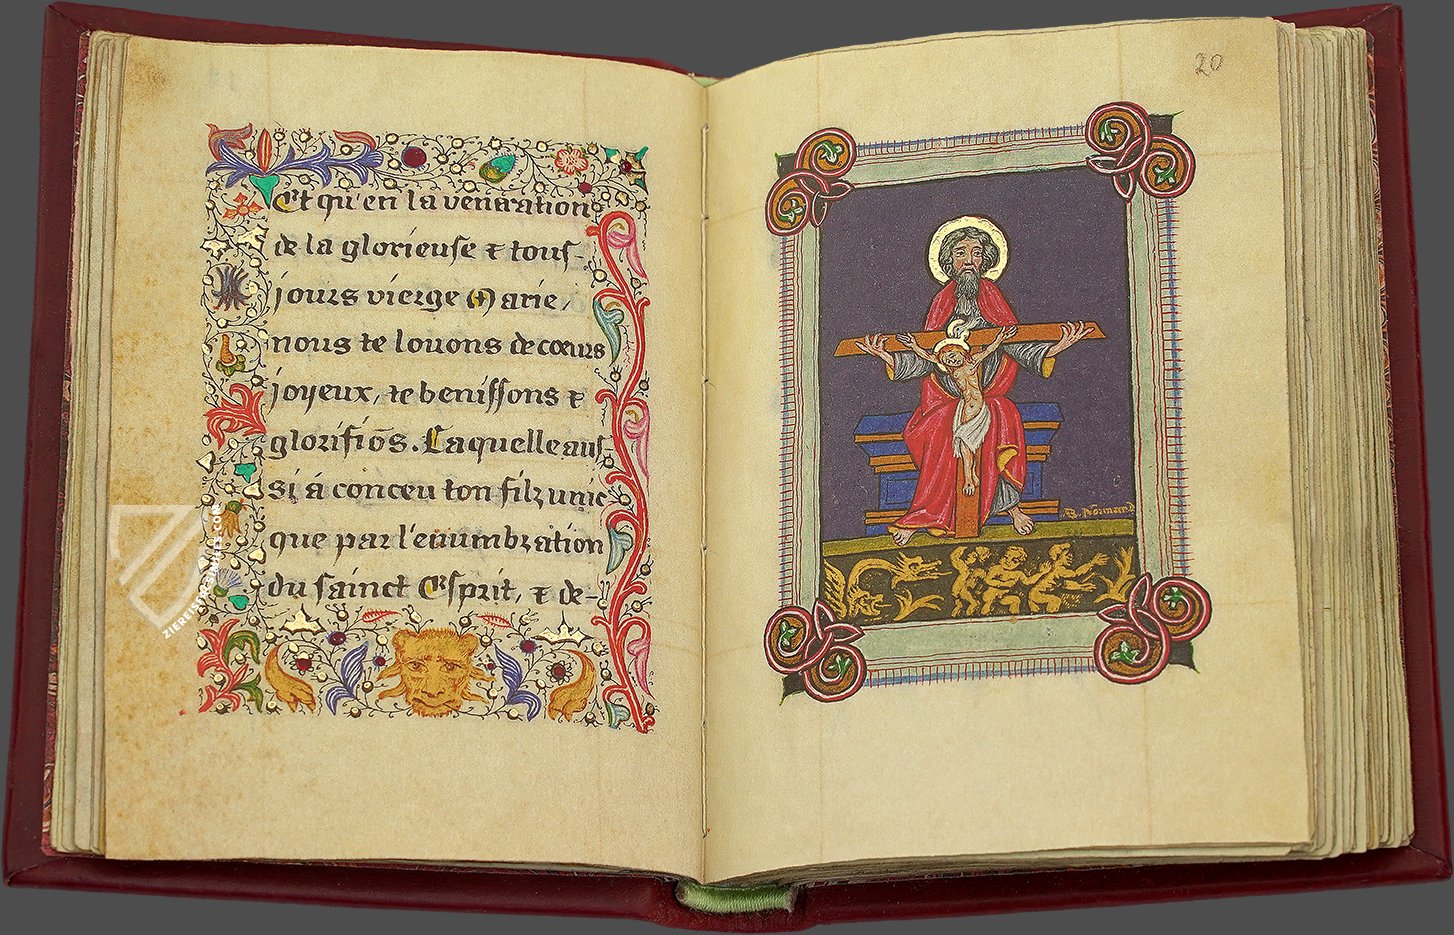 Et qu'en la veneration
de la glorieuse & tous-
jours vierge Marie,
nous te louons de cœurs
joyeux, te benissons &
glorifiõs. Laquelle aus-
si á conceu ton filz unic
que par l'enumbration
du sainct Esprit, & de-
20
B. Normand
ZIEREISFACSIMILES.COM